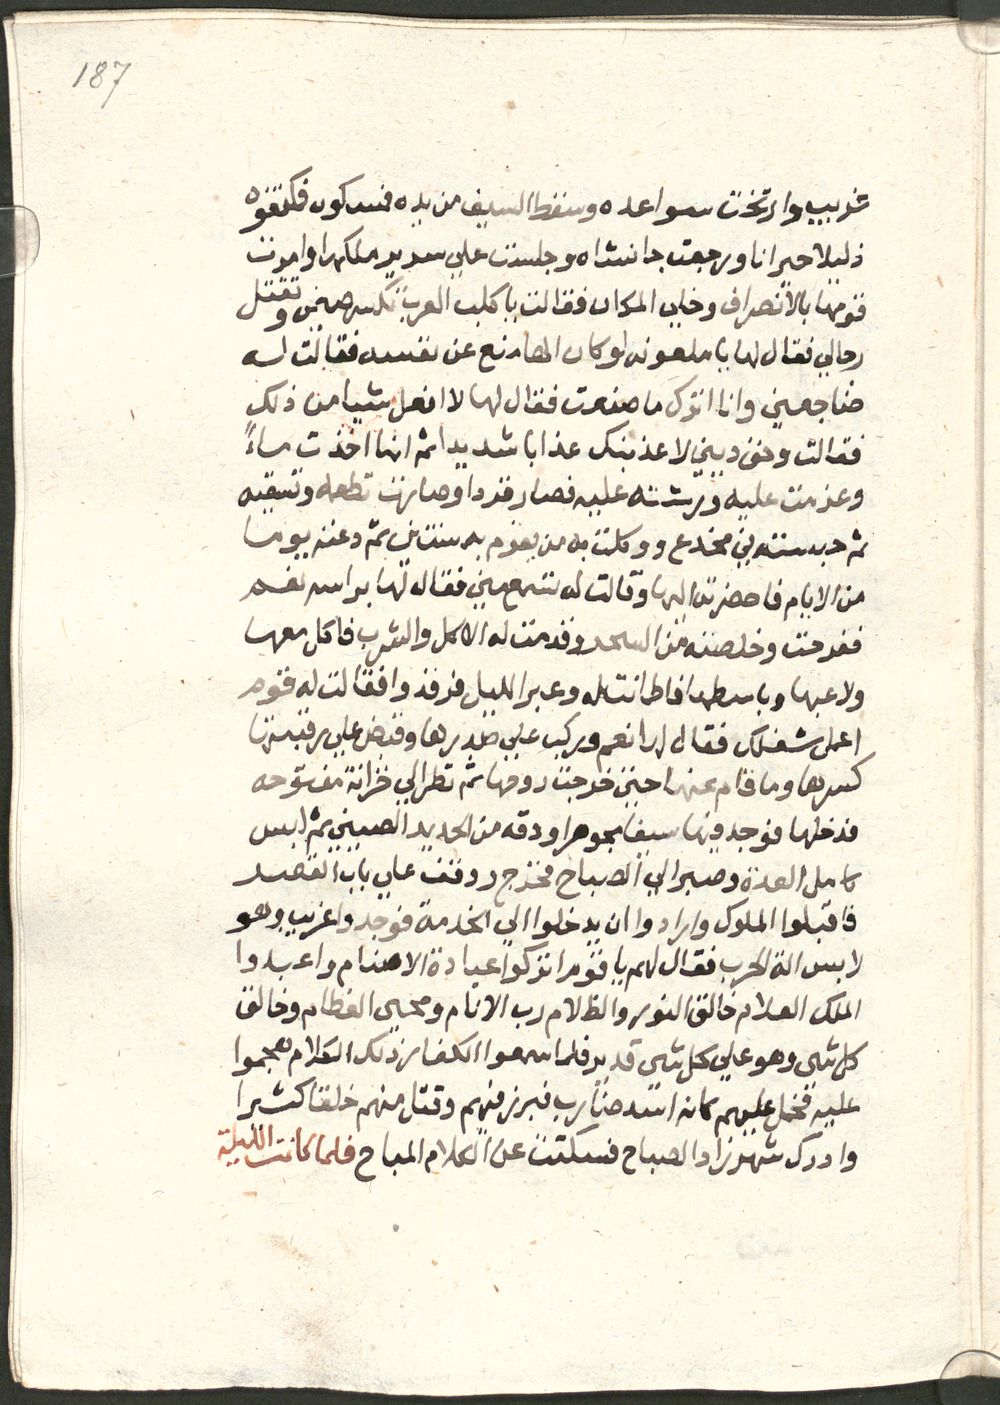 187
غريب وارتخت سواعده وسقط السيف من يده فمسكوه فكتفوه
ذليلا حيرانا ورجعت جانشاه وجلست علي سرير ملكها وامرت
قومها بالانصراف وخلي المكان فقالت يا كلب العرب تكسر صنمي وتقتل
رجالي فقال لها يا ملعونه لو كان الها منع عن نفسه فقالت له
ضاجعني وانا اترك ما صنعت فقال لها لا افعل شيا من ذلك
فقالت وحق ديني لاعذبنك عذابا شديدا ثم انها اخذت ماءً
وعزمت عليه ورشته عليه فصار قردا وصارت تطعمه وتسقيه
ثم حبسته في مخدع ووكلت به من يقوم به سنتين ثم دعته يوما
من الايام فاحضرته اليها وقالت له تسمع مني فقال لها براسه نعم
ففرحت وخلصته من السحر وقدمت له الاكل والشرب فاكل معها
ولاعبها وباسطها فاطمانت له وعبر الليل فرقدوا فقالت له قوم
اعمل شغلك فقال لها نعم وركب علي صدرها وقبض علي رقبتها
كسرها وما قام عنها حتى خرجت روحها ثم نظر الي خزانة مفتوحه
فدخلها فوجد فيها سيفا مجوهرا ودرقه من الحديد الصيني ثم لبس
كامل العدة وصبر الي الصباح فخرج ووقف علي باب القصر
فاقبلوا الملوك وارادوا ان يدخلوا الي الخدمة فوجدوا غريب وهو
لابس الة الحرب فقال لهم يا قوم اتركوا عبادة الاصنام واعبدوا
الملك العلام خالق النور والظلام رب الانام ومحيي العظام وخالق
كل شي وهو علي كل شي قدير فلما سمعوا الكفار ذلك الكلام هجموا
عليه فحمل عليهم كانه اسد ضارب فبرز فيهم وقتل منهم خلقا كثيرا
وادرك شهرزاد الصباح فسكتت عن الكلام المباح فلما كانت الليلة